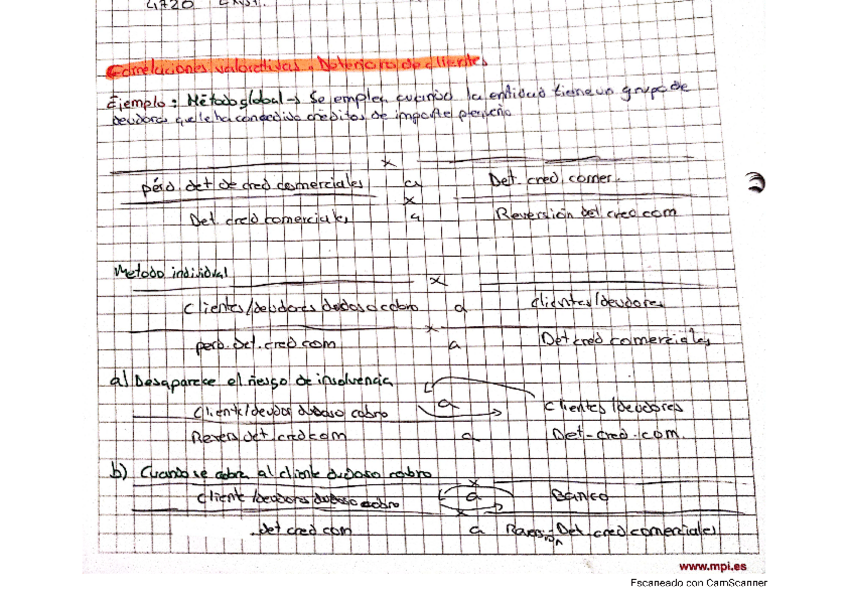 4720
Correlaciones valorativas. Deterioro de clientes
Ejemplo: Método global → Se emplea cuando la entidad tiene un grupo de
deudores que le ha concedido créditos de importe pequeño
x
pérd det de cred comerciales a Det. cred. comer.
x
Det cred comerciales a Reversión Det cred com
Metodo individual
x
Clientes/deudores dudoso cobro a clientes/deudores
x
perd. Det. cred com a Det cred comerciales
a) Desaparece el riesgo de insolvencia
Cliente/deudor dudoso cobro a clientes/deudores
Revers det cred com a Det-cred.com.
b) Cuando se cobra al cliente dudoso cobro
x
Cliente/deudores dudoso cobro a Banco
x
.det cred com a Reversión Det. cred comerciales
www.mpi.es
Escaneado con CamScanner